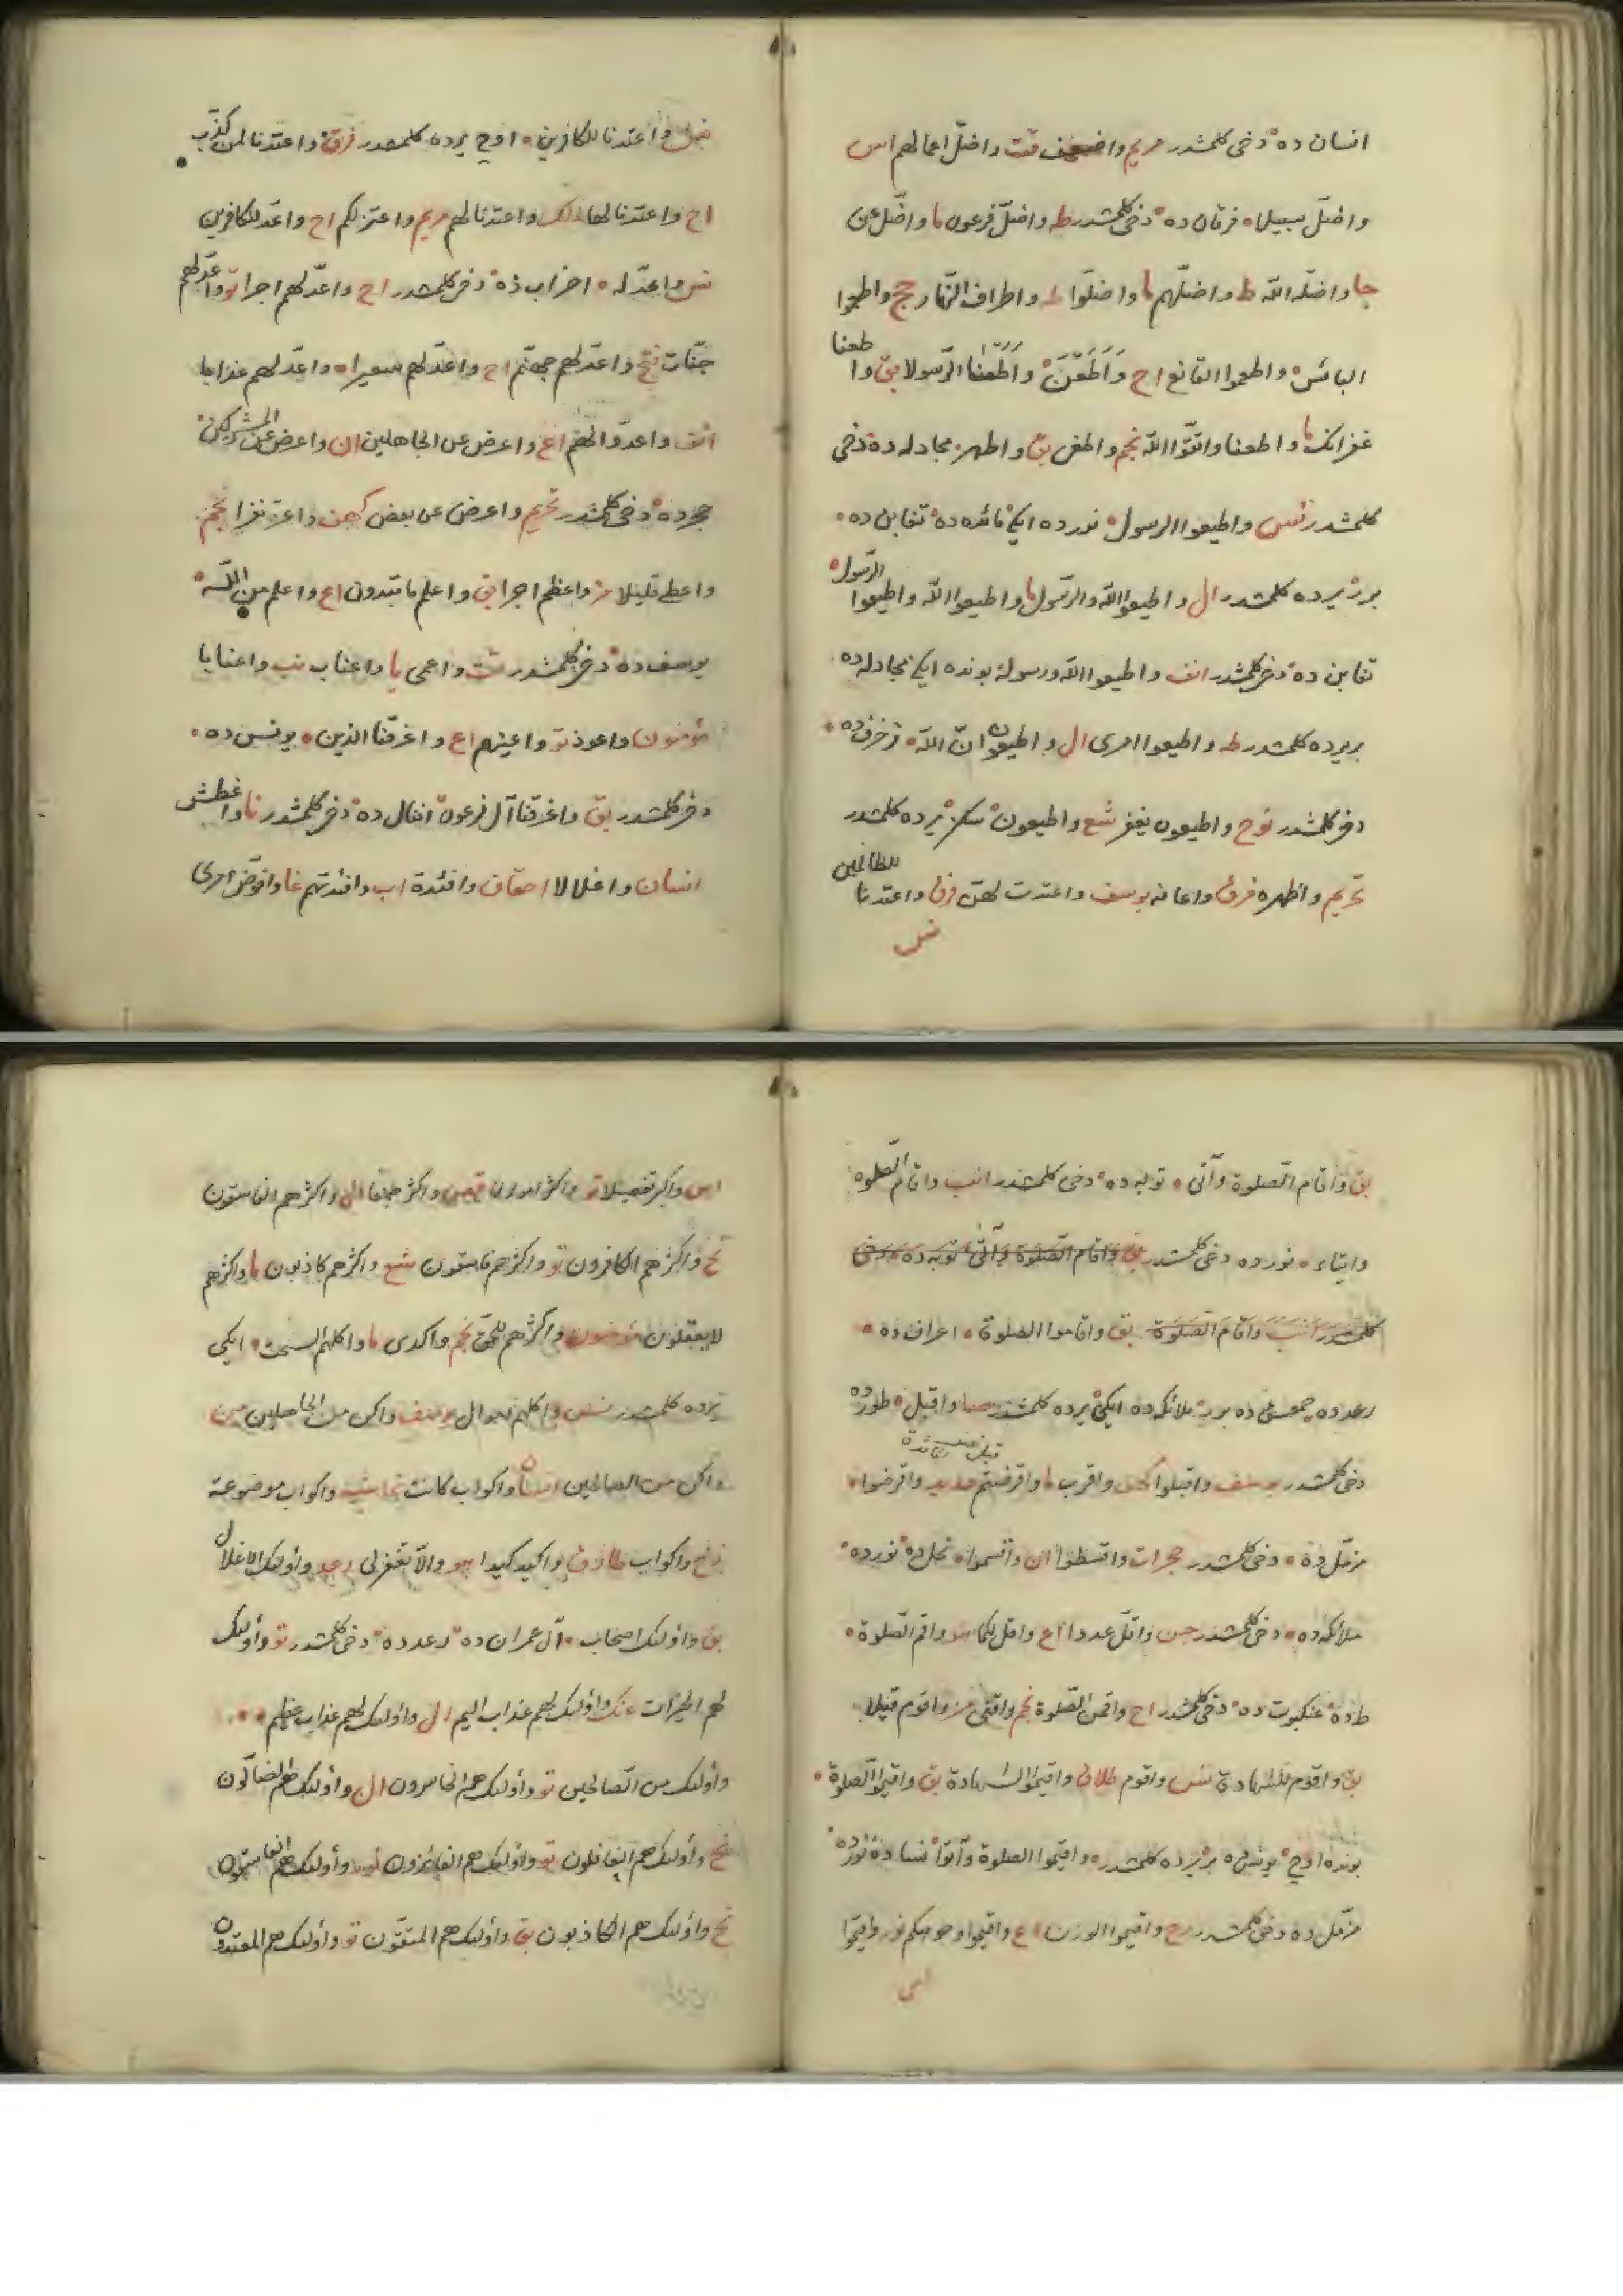 انسان ده دخی كلمشدر مريم واضعف قت واضلّ اعمالهم اس
واضلّ سبيلا فرقان ده دخی كلمشدر طه واضلّ فرعون ما واضلّ عن
جا واضلّه الله ط واضلّهم ما واضلّوا ط واطراف النّهار حج واطعموا
البائس واطعموا القانع اح وَاَطَعْنَ وَاَطَعْنَا الرّسولا بق واطعنا
غفرانك ما واطعنا واتّقوا الله نجم واطغى بق واطهر مجادله ده دخی
كلمشدر نس واطيعوا الرسول نورده ايكی مائده ده تغابن ده
برر يرده كلمشدر ال واطيعوا الله والرّسول ما واطيعوا الله واطيعوا الرّسول
تغابن ده دخی كلمشدر انف واطيعوا الله ورسوله بونده ايكی مجادله ده
بر يرده كلمشدر طه واطيعوا امری ال واطيعون انّ الله زخرف ده
دخی كلمشدر نوح واطيعون يغفر شع واطيعون سكز يرده كلمشدر
تحريم واظهره فرق واعانه يوسف واعتدت لهنّ فرق واعتدنا للظالمين
نس
واعتدنا للكافرين اوچ يرده كلمشدر فرق واعتدنا لمن كذّب
اح واعتدنا لها ملك واعتدنا لهم مريم واعتزلكم اح واعدّ للكافرين
نس واعدّ له احزاب ده دخی كلمشدر اح واعدّ لهم اجرا تو واعدّ لهم
جنّات فتح واعدّ لهم جهنّم اح واعدّ لهم سعيرا واعدّ لهم عذابا
انف واعدّوا لهم اع واعرض عن الجاهلين ان واعرض عن المشركين
حجر ده دخی كلمشدر تحريم واعرض عن بعض كهف واعزّ نفرا نجم
واعطى قليلا مز واعظم اجرا بق واعلم ما تبدون اع واعلم من الله
يوسف ده دخی كلمشدر شت واعمى يا واعناب نب واعنابا
مؤمنون واعوذ تو واعينهم اع واغرقنا الذين يونس ده
دخی كلمشدر بق واغرقنا آل فرعون انفال ده دخی كلمشدر نا واغطش
انسان واغلالا احقاف وافئدة اب وافئدتهم غا وافوّض امری
بق وَاقام الصّلوة وَآتى توبه ده دخی كلمشدر انب واقام الصّلوة
وايتاء نور ده دخی كلمشدر بق وَاقام الصّلوة وَآتى توبه ده دخی
كلمشدر انب وَاقام الصّلوة بق واقاموا الصلوة اعراف ده
رعد ده حمعسق ده برر ملائكه ده ايكی يرده كلمشدر صا واقبل طور ده
دخی كلمشدر يوسف واقبلوا كهف واقرب ما واقرضتم حديد واقرضوا
مزمّل ده دخی كلمشدر حجرات واقسطوا ان واقسموا نحل ده نور ده
ملائكه ده دخی كلمشدر جن واقلّ عددا اع واقل لكما هو واقم الصّلوة
ط ده عنكبوت ده دخی كلمشدر اح واقمن الصّلوة نجم واقنى مز واقوم قيلا
بق واقوم للشهادة نس واقوم طلاق واقيموا الشهادة بق واقيموا الصّلوة
بونده اوچ يونس ده برر يرده كلمشدر واقيموا الصلوة وآتوا نسا ده نور ده
مزمّل ده دخی كلمشدر رح واقيموا الوزن اع واقيموا وجوهكم نور واقيموا
اس
اس واكبر تفضيلا تو واكثر اموالا قصص واكثر جمعا ال واكثرهم الفاسقون
نح واكثرهم الكافرون تو واكثرهم فاسقون شع واكثرهم كاذبون ما واكثرهم
لا يعقلون مؤمنون واكثرهم للحقّ نجم واكدى ما واكلهم السحت ايكی
يرده كلمشدر نس واكلهم اموال يوسف واكن من الجاهلين من
واكن من الصالحين انسان واكواب كانت غاشيه واكواب موضوعة
زخ واكواب طارق واكيد كيدا هو والّا تغفر لی رعد وأولئك الاغلال
بق واؤلئك اصحاب آل عمران ده رعد ده دخی كلمشدر تو وأولئك
لهم الخيرات عنك واؤلئك لهم عذاب اليم ال وأولئك لهم عذاب عظيم
وأولئك من الصّالحين تو وأولئك هم الخاسرون ال وأولئك هم الضّالّون
نح وأولئك هم الغافلون تو وأولئك هم الفائزون نور وأولئك هم الفاسقون
نح واؤلئك هم الكاذبون بق وأولئك هم المتّقون تو وأولئك هم المعتدون